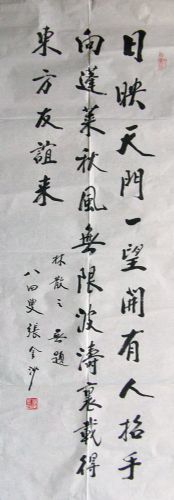 日映天門一望開有人招手
向蓬萊秋風無限波濤裏載得
東方友誼來
林散之無題
八四叟張金沙